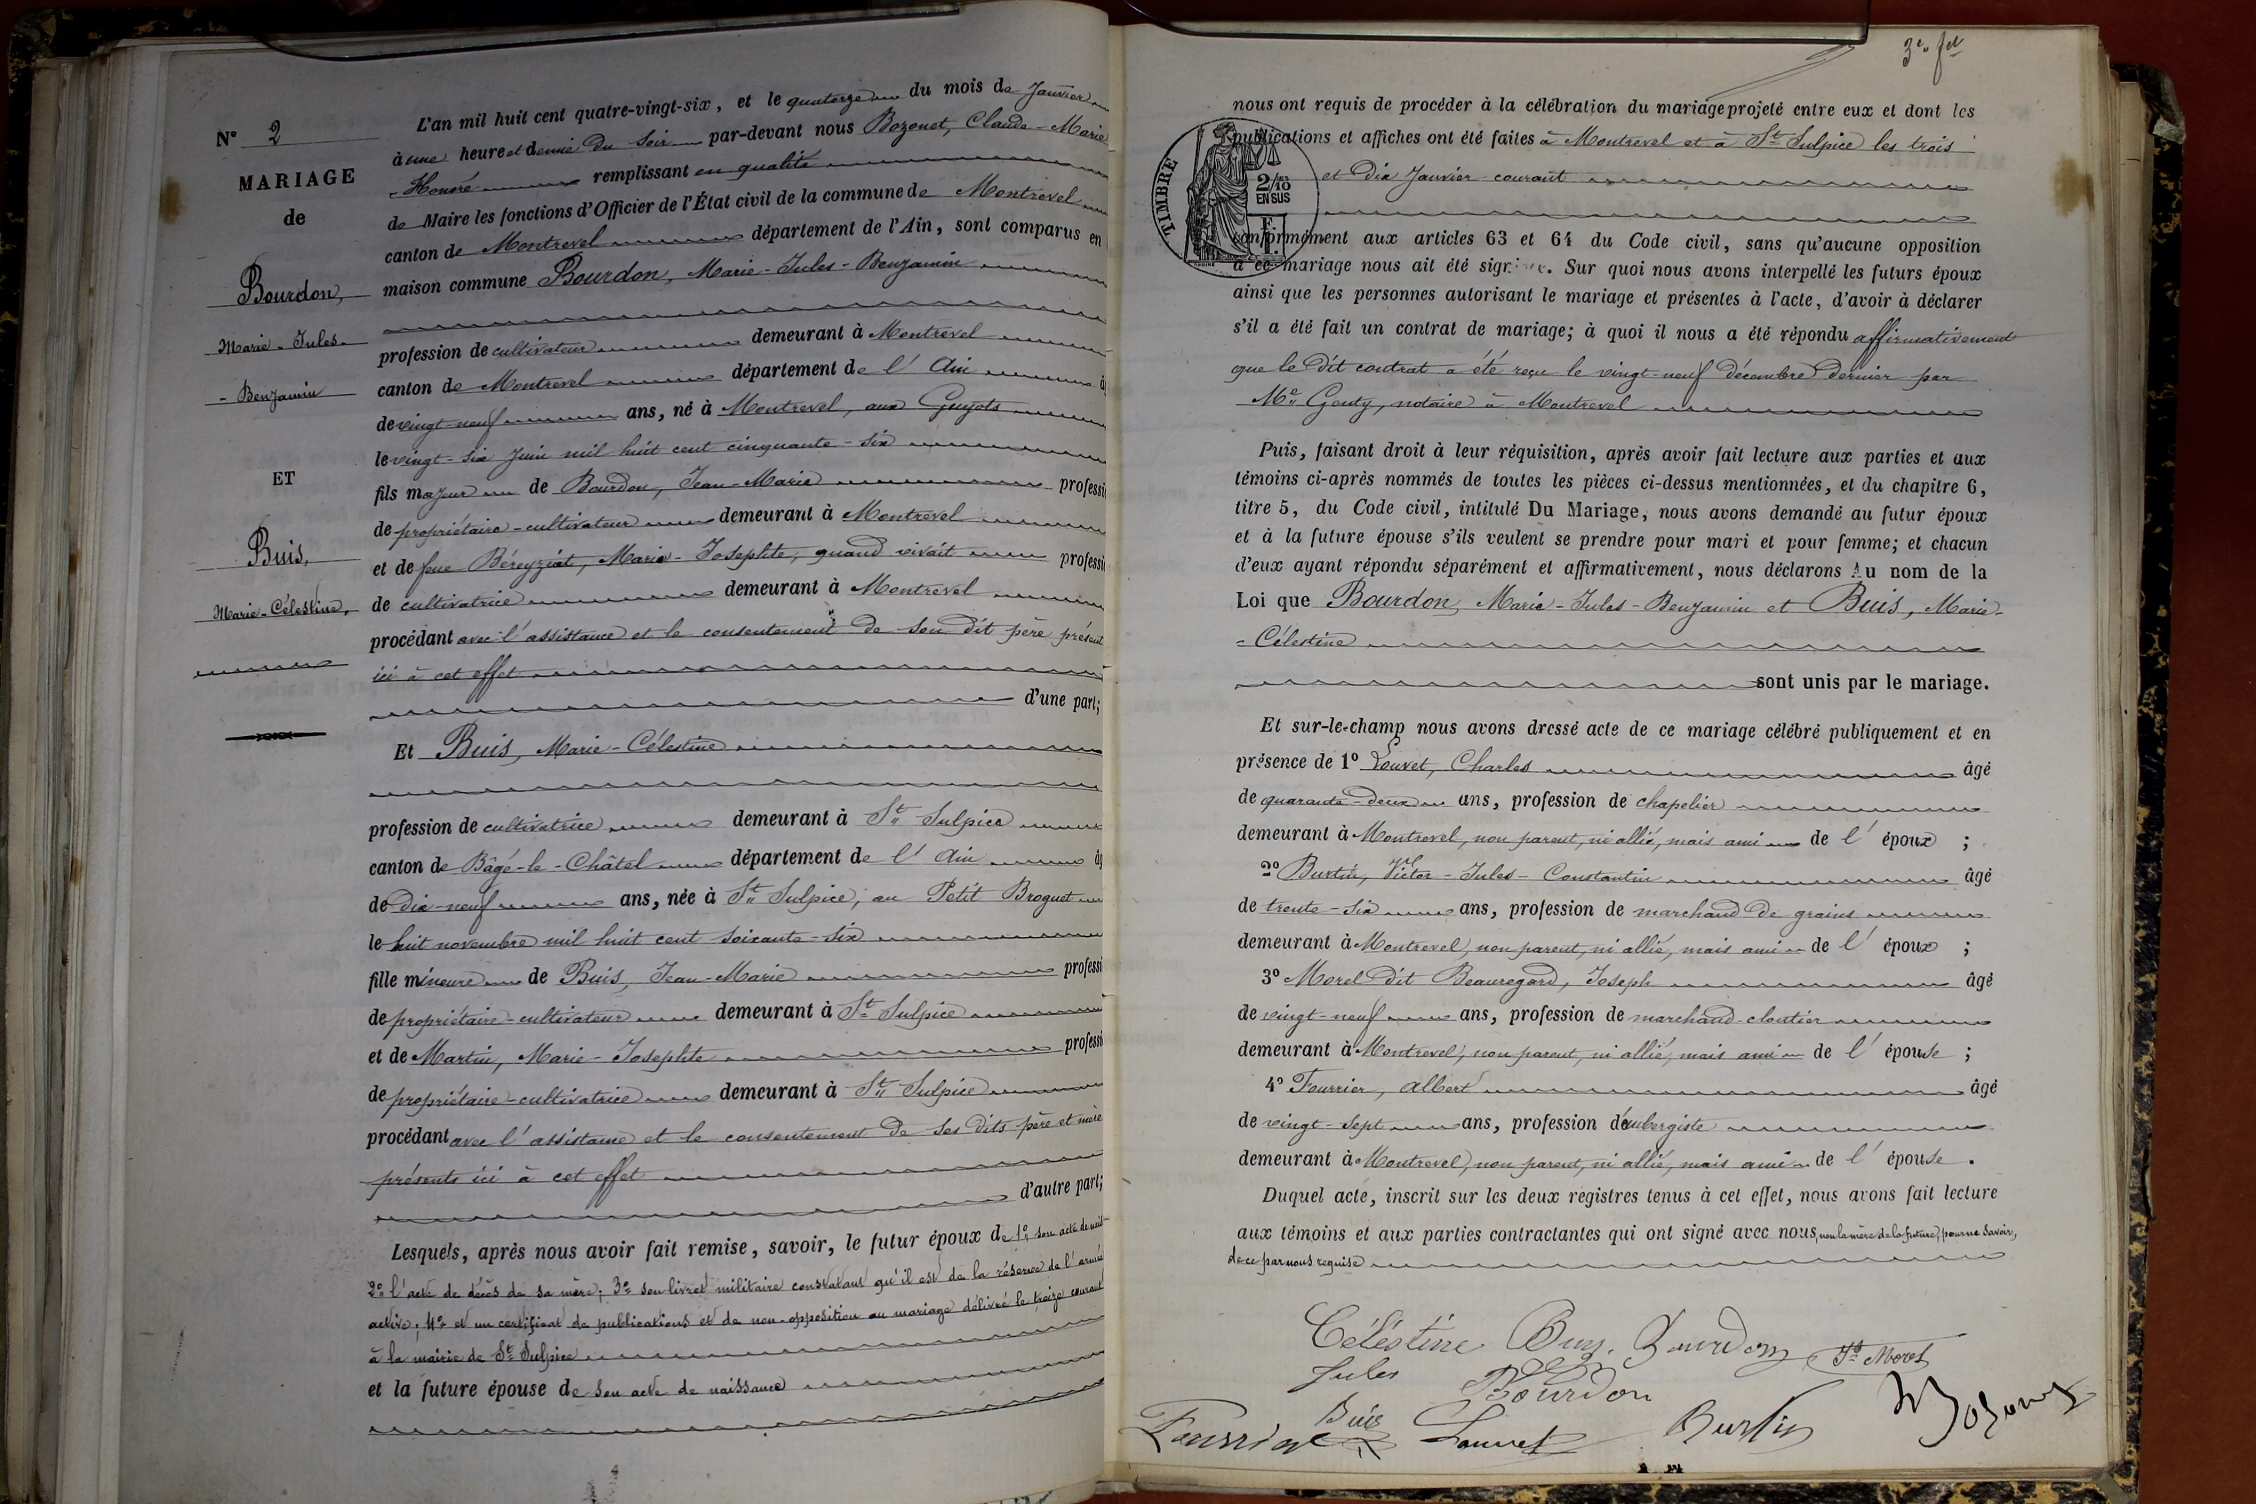 N° 2
MARIAGE
de
Bourdon,
Marie-Jules-
-Benjamin
ET
Buis,
Marie-Célestine,
L'an mil huit cent quatre-vingt-six, et le quatorze du mois de Janvier
à une heure et demie du soir par-devant nous Bozonet, Claude-Marie
Honoré remplissant en qualité
de Maire les fonctions d'Officier de l'État civil de la commune de Montrevel
canton de Montrevel département de l'Ain, sont comparus en
maison commune Bourdon, Marie-Jules-Benjamin
profession de cultivateur demeurant à Montrevel
canton de Montrevel département de l'Ain
de vingt-neuf ans, né à Montrevel, aux Guyots
le vingt-six Juin mil huit cent cinquante-six
fils majeur de Bourdon, Jean-Marie professi
de propriétaire-cultivateur demeurant à Montrevel
et de feue Béreyziat, Marie-Josephte, quand vivait professi
de cultivatrice demeurant à Montrevel
procédant avec l'assistance et le consentement de son dit père présent
ici à cet effet
d'une part;
Et Buis, Marie-Célestine
profession de cultivatrice demeurant à St Sulpice
canton de Bâgé-le-Châtel département de l'Ain
de dix-neuf ans, née à St Sulpice, au Petit Broguet
le huit novembre mil huit cent soixante-six
fille mineure de Buis, Jean-Marie professi
de propriétaire-cultivateur demeurant à St Sulpice
et de Martin, Marie-Josephte professi
de propriétaire-cultivatrice demeurant à St Sulpice
procédant avec l'assistance et le consentement de ses dits père et mère
présents ici à cet effet
d'autre part;
Lesquels, après nous avoir fait remise, savoir, le futur époux de 1° son acte de nais-
2° l'acte de décès de sa mère; 3° son livret militaire constatant qu'il est de la réserve de l'armée
active; 4° et un certificat de publications et de non-opposition au mariage délivré le treize courant
à la mairie de St Sulpice
et la future épouse de son acte de naissance
3e ft
nous ont requis de procéder à la célébration du mariage projeté entre eux et dont les
publications et affiches ont été faites à Montrevel et à St Sulpice les trois
et dix Janvier courant
TIMBRE
2/10
EN SUS
conformément aux articles 63 et 64 du Code civil, sans qu'aucune opposition
à ce mariage nous ait été signifiée. Sur quoi nous avons interpellé les futurs époux
ainsi que les personnes autorisant le mariage et présentes à l'acte, d'avoir à déclarer
s'il a été fait un contrat de mariage; à quoi il nous a été répondu affirmativement
que le dit contrat a été reçu le vingt-neuf décembre dernier par
Me Genty, notaire à Montrevel
Puis, faisant droit à leur réquisition, après avoir fait lecture aux parties et aux
témoins ci-après nommés de toutes les pièces ci-dessus mentionnées, et du chapitre 6,
titre 5, du Code civil, intitulé Du Mariage, nous avons demandé au futur époux
et à la future épouse s'ils veulent se prendre pour mari et pour femme; et chacun
d'eux ayant répondu séparément et affirmativement, nous déclarons Au nom de la
Loi que Bourdon, Marie-Jules-Benjamin et Buis, Marie-
-Célestine
sont unis par le mariage.
Et sur-le-champ nous avons dressé acte de ce mariage célébré publiquement et en
présence de 1° Louvet, Charles âgé
de quarante-deux ans, profession de chapelier
demeurant à Montrevel, non parent, ni allié, mais ami de l'époux ;
2° Burtin, Victor-Jules-Constantin âgé
de trente-six ans, profession de marchand de grains
demeurant à Montrevel, non parent, ni allié, mais ami de l'époux ;
3° Morel dit Beauregard, Joseph âgé
de vingt-neuf ans, profession de marchand-cloutier
demeurant à Montrevel, non parent, ni allié, mais ami de l'épouse ;
4° Fourrier, Albert âgé
de vingt-sept ans, profession d'aubergiste
demeurant à Montrevel, non parent, ni allié, mais ami de l'épouse .
Duquel acte, inscrit sur les deux registres tenus à cet effet, nous avons fait lecture
aux témoins et aux parties contractantes qui ont signé avec nous, non la mère de la future, pour ne savoir,
de ce par nous requise
Célestine Buis. Bourdon Jh Morel
Jules Bourdon
Fourrier Buis Louvet Burtin Bozonet